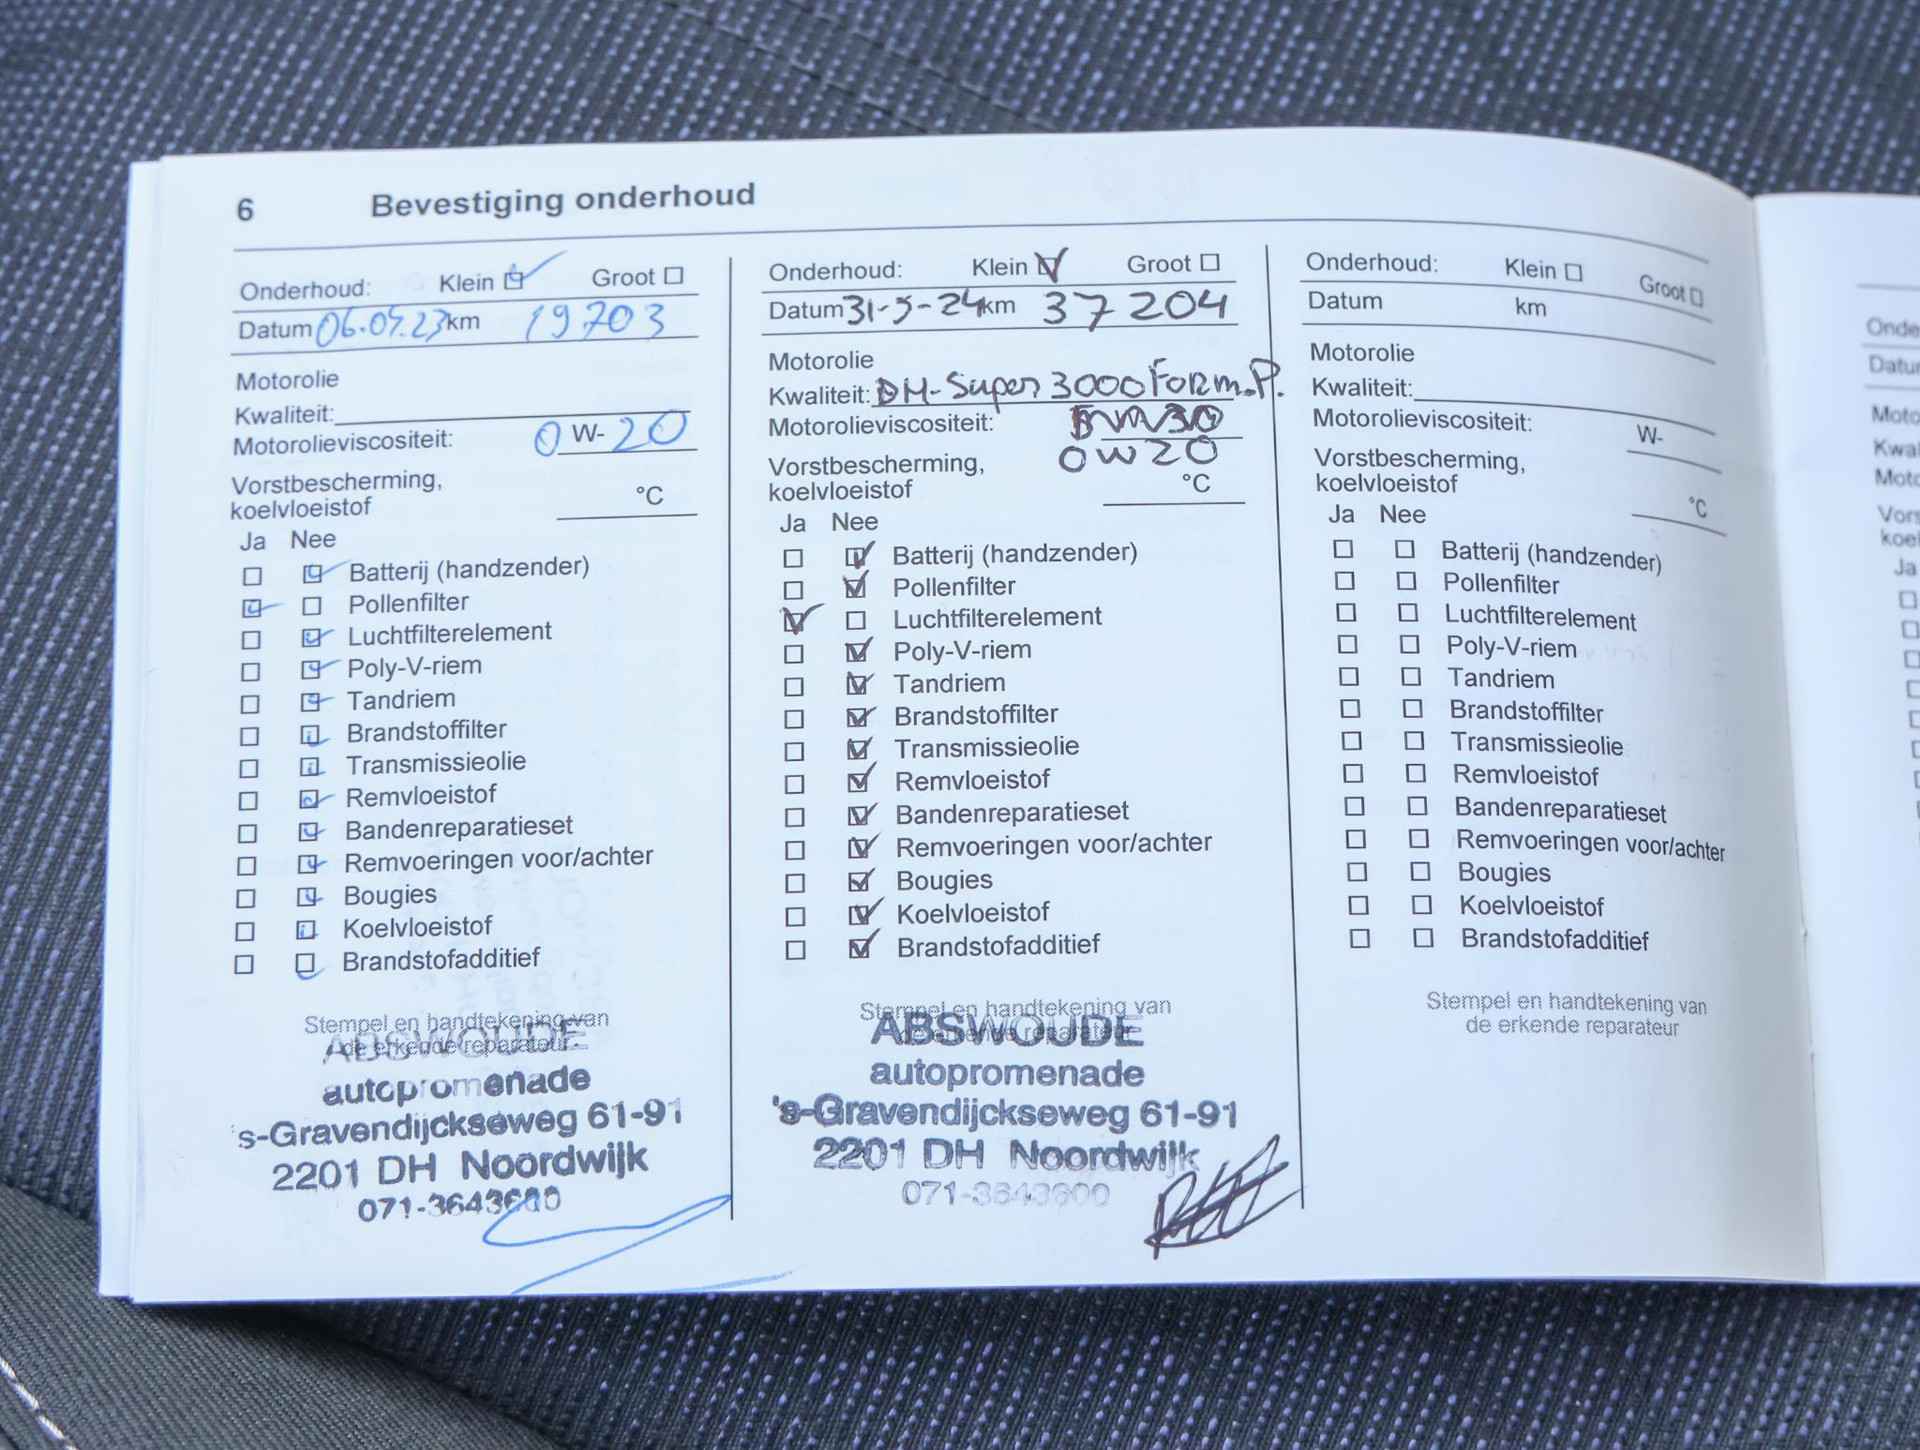 6 Bevestiging onderhoud
Onderhoud: Klein Groot
Datum 06.04.23 km 19703
Motorolie
Kwaliteit:
Motorolieviscositeit: 0 W- 20
Vorstbescherming,
koelvloeistof °C
Ja Nee
Batterij (handzender)
Pollenfilter
Luchtfilterelement
Poly-V-riem
Tandriem
Brandstoffilter
Transmissieolie
Remvloeistof
Bandenreparatieset
Remvoeringen voor/achter
Bougies
Koelvloeistof
Brandstofadditief
Stempel en handtekening van
de erkende reparateur
ABSWOUDE
autopromenade
's-Gravendijckseweg 61-91
2201 DH Noordwijk
071-3643600
Onderhoud: Klein Groot
Datum 31-5-24 km 37204
Motorolie
Kwaliteit: DM-Super 3000 Form.P.
Motorolieviscositeit:
0W20
Vorstbescherming,
koelvloeistof °C
Ja Nee
Batterij (handzender)
Pollenfilter
Luchtfilterelement
Poly-V-riem
Tandriem
Brandstoffilter
Transmissieolie
Remvloeistof
Bandenreparatieset
Remvoeringen voor/achter
Bougies
Koelvloeistof
Brandstofadditief
Stempel en handtekening van
de erkende reparateur
ABSWOUDE
autopromenade
's-Gravendijckseweg 61-91
2201 DH Noordwijk
071-3643600
Onderhoud: Klein Groot
Datum km
Motorolie
Kwaliteit:
Motorolieviscositeit: W-
Vorstbescherming,
koelvloeistof °C
Ja Nee
Batterij (handzender)
Pollenfilter
Luchtfilterelement
Poly-V-riem
Tandriem
Brandstoffilter
Transmissieolie
Remvloeistof
Bandenreparatieset
Remvoeringen voor/achter
Bougies
Koelvloeistof
Brandstofadditief
Stempel en handtekening van
de erkende reparateur